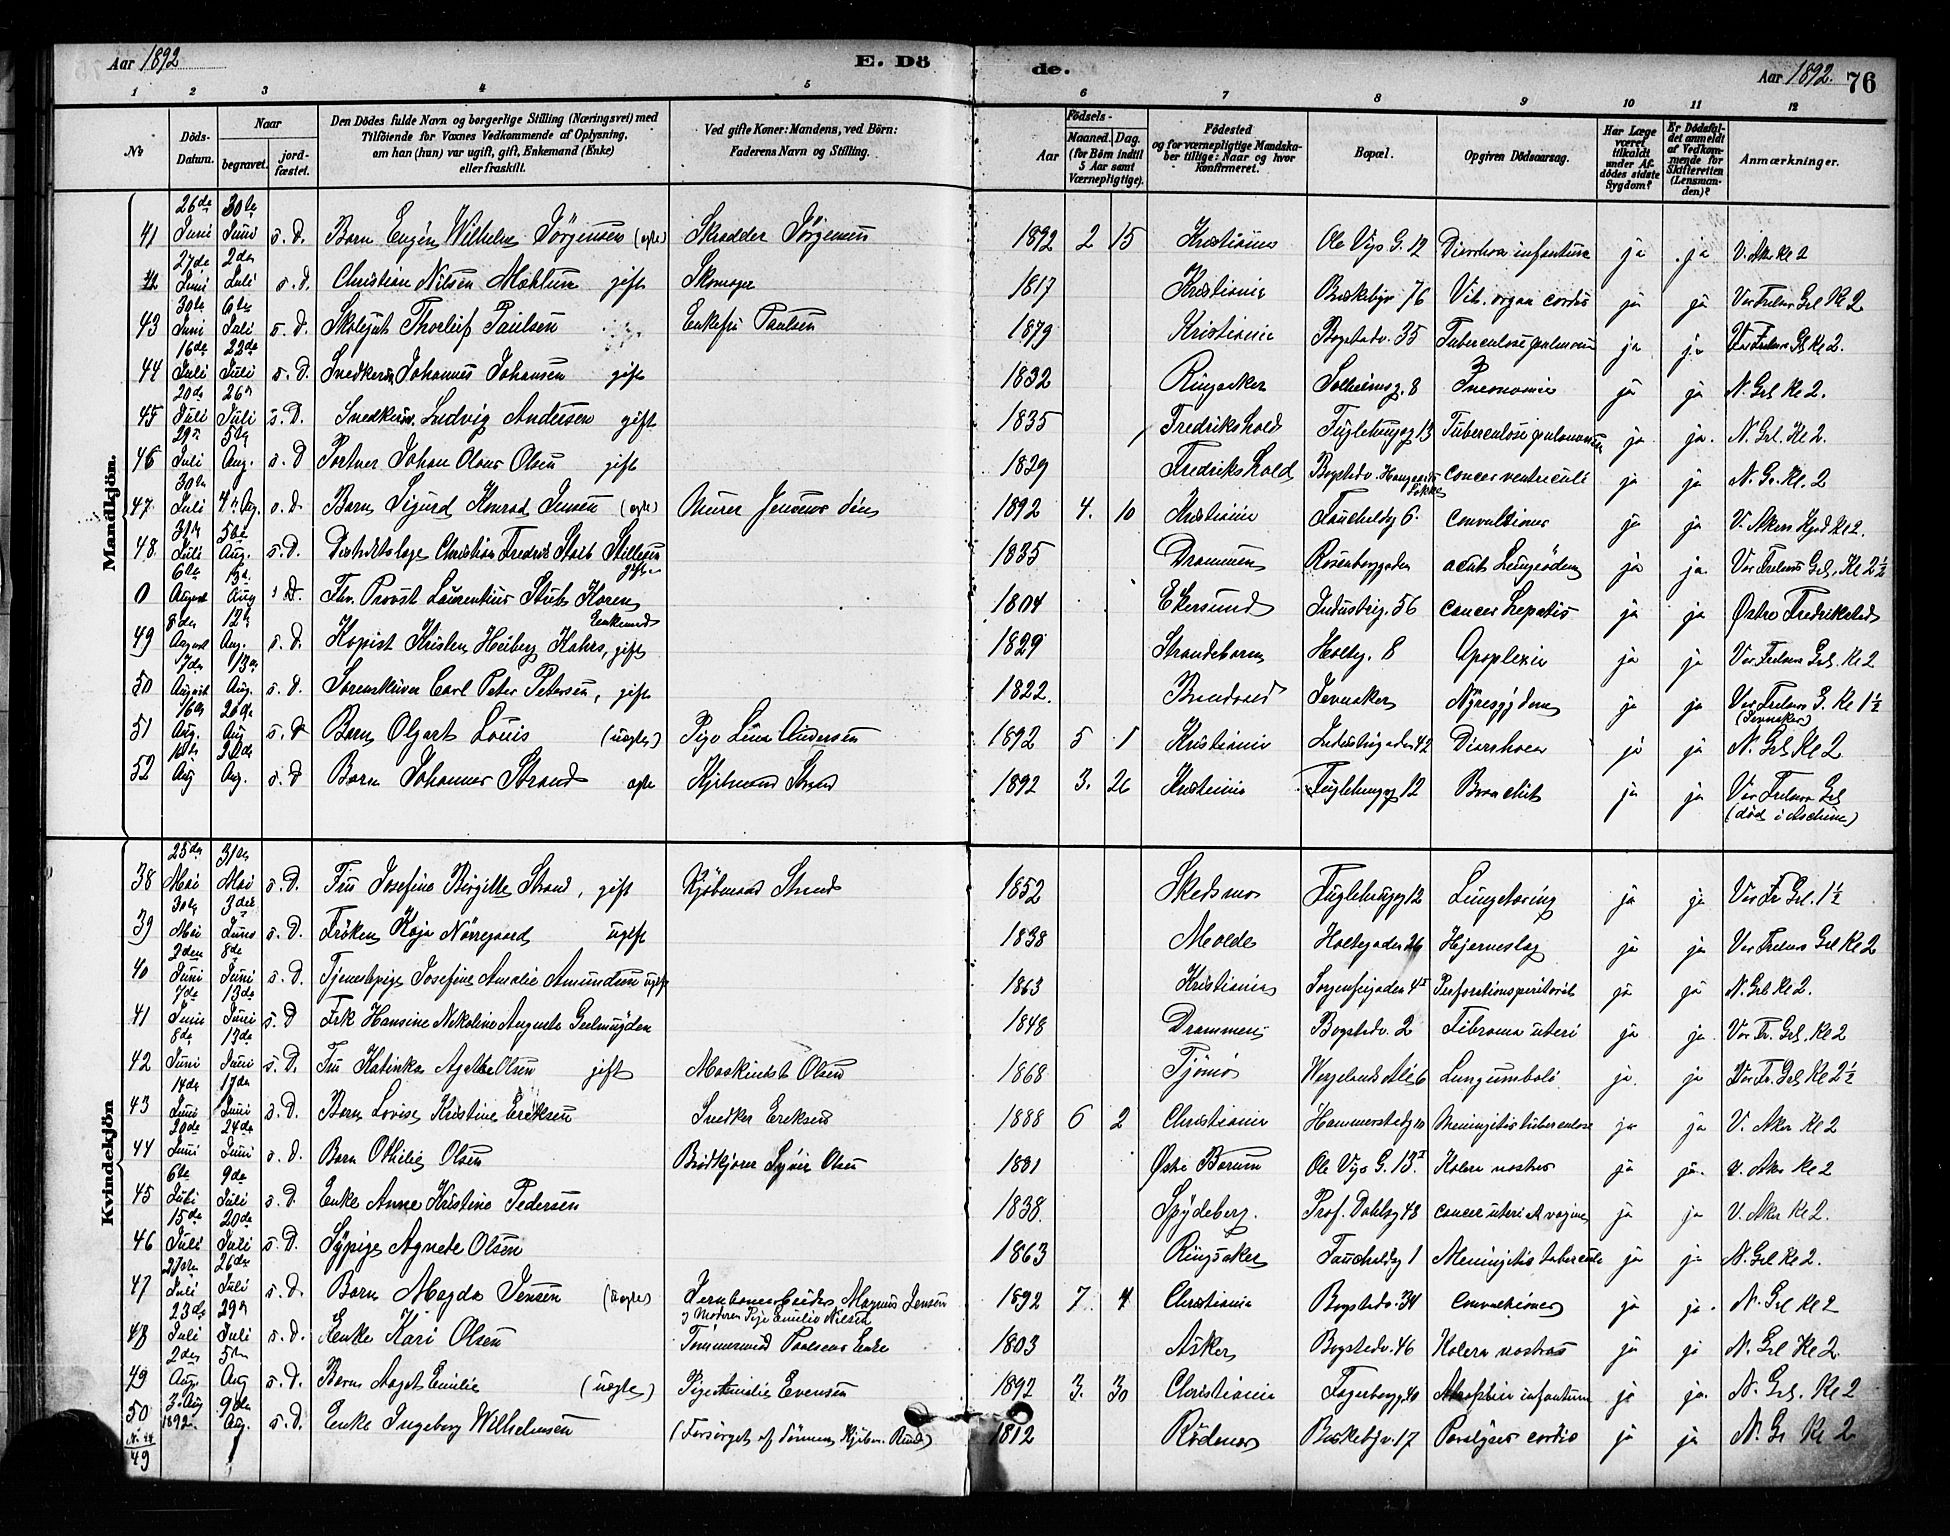 Aar 1892 E. Dö de. Aar 1892. 76
1 2 3 4 5 6 7 8 9 10 11 12
No
Döds-Datum.
Naar
begravet.
jordfæstet.
Den Dödes fulde Navn og borgerlige Stilling (Næringsvei) med
Tilföiende for Voxnes Vedkommende af Oplysning,
om han (hun) var ugift, gift, Enkemand (Enke)
eller fraskilt.
Ved gifte Koner: Mandens, ved Börn:
Faderens Navn og Stilling.
Födsels-
Aar
Maaned. Dag.
(for Börn indtil
5 Aar samt
Værnepligtige).
Födested
og for værnepligtige Mandska-
ber tillige: Naar og hvor
konfirmeret.
Bopæl.
Opgiven Dödsaarsag.
Har Læge
været
tilkaldt
under Af-
dödes sidste
Sygdom?
Er Dödsfal-
det anmeldt
af Vedkom-
mende for
Skifteretten
(Lensman-
den)?
Anmærkninger.
Mandkjön.
41 26de Juni 30te Juni s. D. Barn Eugén Wilhelm Jörgensen (egte) Skrædder Jörgensen 1892 2 15 Kristiania Ole Vigs G. 12 Diarrhoea infantum ja ja V. Aker Kl 2
42 27de Juni 2den Juli s. D. Christian Nilsen Mæhlum gift Skomager 1817 Kristiania Briskebyv 76 Vit. organ cordis ja ja Vor Frelsers Grl Kl 2
43 30te Juni 6te Juli s. D. Skolegut Thorleif Paulsen Enkefru Paulsen 1879 Kristiania Bogstadv. 35 Tuberculose pulmonum ja ja Vor Frelsers Gl Kl 2.
44 16de Juli 22de Juli s. D. Snedkersv. Johannes Johansen gift 1832 Ringsaker Solheimsg. 8 Pneumonia ja ja N. Grl Kl 2.
45 20de Juli 26de Juli s. D. Snedkersv. Ludvig Andersen gift 1835 Fredrikshald Fuglehaugg 13 Tuberculose pulmonum ja ja. N. Grl. Kl 2.
46 29de Juli 5te Aug. s. D Portner Johan Olaus Olsen gift 1829 Fredrikshald Bogstadv. Løkke Cancer ventriculi ja ja N. Gr. Kl. 2
47 30te Juli 4de Aug. s. D. Barn Sigurd Konrad Jensen (egte) Murer Jensens sön 1892 4. 10 Kristiania Fauchaldsg 6. Convultioner ja ja V. Akers Kgd Kl 2.
48 31te Juli 5te Aug. s. D. Distriktslæge Christian Fredrik Stoltz Stillesen gift 1835 Drammen Rosenborggaden acut Lungeödem ja ja Vor Frelsers Grl. Kl 2½
0 6te August 13de Aug s D. Fhv. Provst Laurentius Stub Koren Enkemand 1804 Ekersund Industrig. 56 Cancer hepatis ja ja Østre Fredrikstad
49 8de August 12te Aug. s. D. Kopist Kristen Heiberg Kahrs, gift 1829 Strandebarm Holtg. 8 Apoplexia ja ja Vor Frelsers Grl. Kl 2
50 7de August 13de Aug. s. D. Sorenskriver Carl Peter Petersen, gift 1822. Jevnaker Nyresygdom ja ja Vor Frelsers G. Kl 1½ (Jevnaker)
51 16de Aug. 20de Aug s. D Barn Olgart Louis (uegte) Pige Lina Andersen 1892 5 1 Kristiania Industrigaden 42 Diarrhoea ja ja N. Grl Kl 2
52 Aug Aug. s. D Barn Johannes Strand egte Kjöbmand Strand 1892 3. 26 Kristiania Fuglehaugg 12 Bronchit ja ja Vor Frelsers Grl (död i Aschim)
Kvindekjön
38 25de Mai 31te Mai s. D. Fru Josefine Birgitte Strand, gift Kjöbmand Strand 1852 Skedsmo Fuglehaugg 12 Lungetæring ja ja Vor Fr Grl. 1½
39 30te Mai 3die Juni s. D. Fröken Kaja Nörregaard ugift 1838 Molde Holtegaden 26 Hjerneslag ja ja Vor Frelsers Grl Kl 2
40 2den Juni 8de Juni s. D. Tjenestepige Josefine Amalie Amundsen ugift 1863 Kristiania Sorgenfrigaden 4 I Perforationsperitonit ja ja N. Grl Kl 2.
41 7de Juni 13de Juni s. D Frk Hansine Nikoline Augusta Geelmuyden 1848 Drammen Bogstadv. 2 Fibroma uteri ja ja. Vor Fr. Grl. Kl 2
42 8de Juni 13de Juni s. D. Fru Katinka Agathe Olsen gift Maskinist Olsen 1868 Tjömö Wergelands Allé 6 Lungemboli ja ja Vor Fr. Grl Kl 2½
43 14de Juni 17de Juni s. D. Barn Lovise Kristine Eriksen Snedker Eriksen 1888 6 2 Christiania Hammerstadg 10 Meningitis tuberculose ja ja V. Aker Kl 2
44 20de Juni 24de Juni s. D. Barn Othilie Olsen Brödkjörer Syver Olsen 1881 Østre Bærum Ole Vigs G. 13 I Kolera nostras ja ja. V. Aker Kl 2
45 6te Juli 9de Juli s. D. Enke Anne Kristine Pedersen 1838. Spydeberg. Prof. Dahlsg 48 Cancer uteri et vagina ja ja V. Aker Kl 2.
46 15de Juli 20de Juli s. D. Sypige Agnete Olsen 1863 Ringsaker Fauchaldsg 1 Meningitis tubercule ja ja N. Grl Kl 2.
47 Juli 26de Juli s. D. Barn Magda Jensen (uegte) Jernbanearbeider Magnus Jensen og Moderen Pige Emilie Nilsen 1892 7. 4 Christiania Bogstadv. 34 Convultioner ja ja. N. Grl Kl 2
48 23de Juli 29de Juli s. D. Enke Kari Olsen Tömmermand Paalsens Enke 1803 Asker Bogstadv. 46 Kolera nostras ja ja N. Grl Kl 2
49 2den Aug. 5te Aug s. D. Barn Aagot Emilie (uegte) Pige Amalie Evensen 1892 3. 30 Christiania Fagerborgg 40 Atrophia infantum ja ja. N. Grl. Kl 2
50 3. Aug 1892 9de Aug. s. D. Enke Ingeborg Wilhelmsen (Forsörget af Sönnen Kjöbm. Rud) 1812 Rödenes Briskebyv. 17 Paralysis cordis ja ja N. Gr Kl 2
49